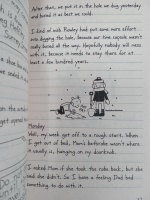 After that, we put it in the hole we dug yesterday
and buried it as best we could.
I kind of wish Rowley had put some more effort
into digging the hole, because our time capsule wasn't
really buried all the way. Hopefully nobody will mess
with it, because it needs to stay there for at
least a few hundred years.
Monday
Well, my week got off to a rough start. When
I got out of bed, Mom's bathrobe wasn't where
it usually is, hanging on my doorknob.
I asked Mom if she took the robe back, but she
said she didn't. So I have a feeling Dad had
something to do with it.